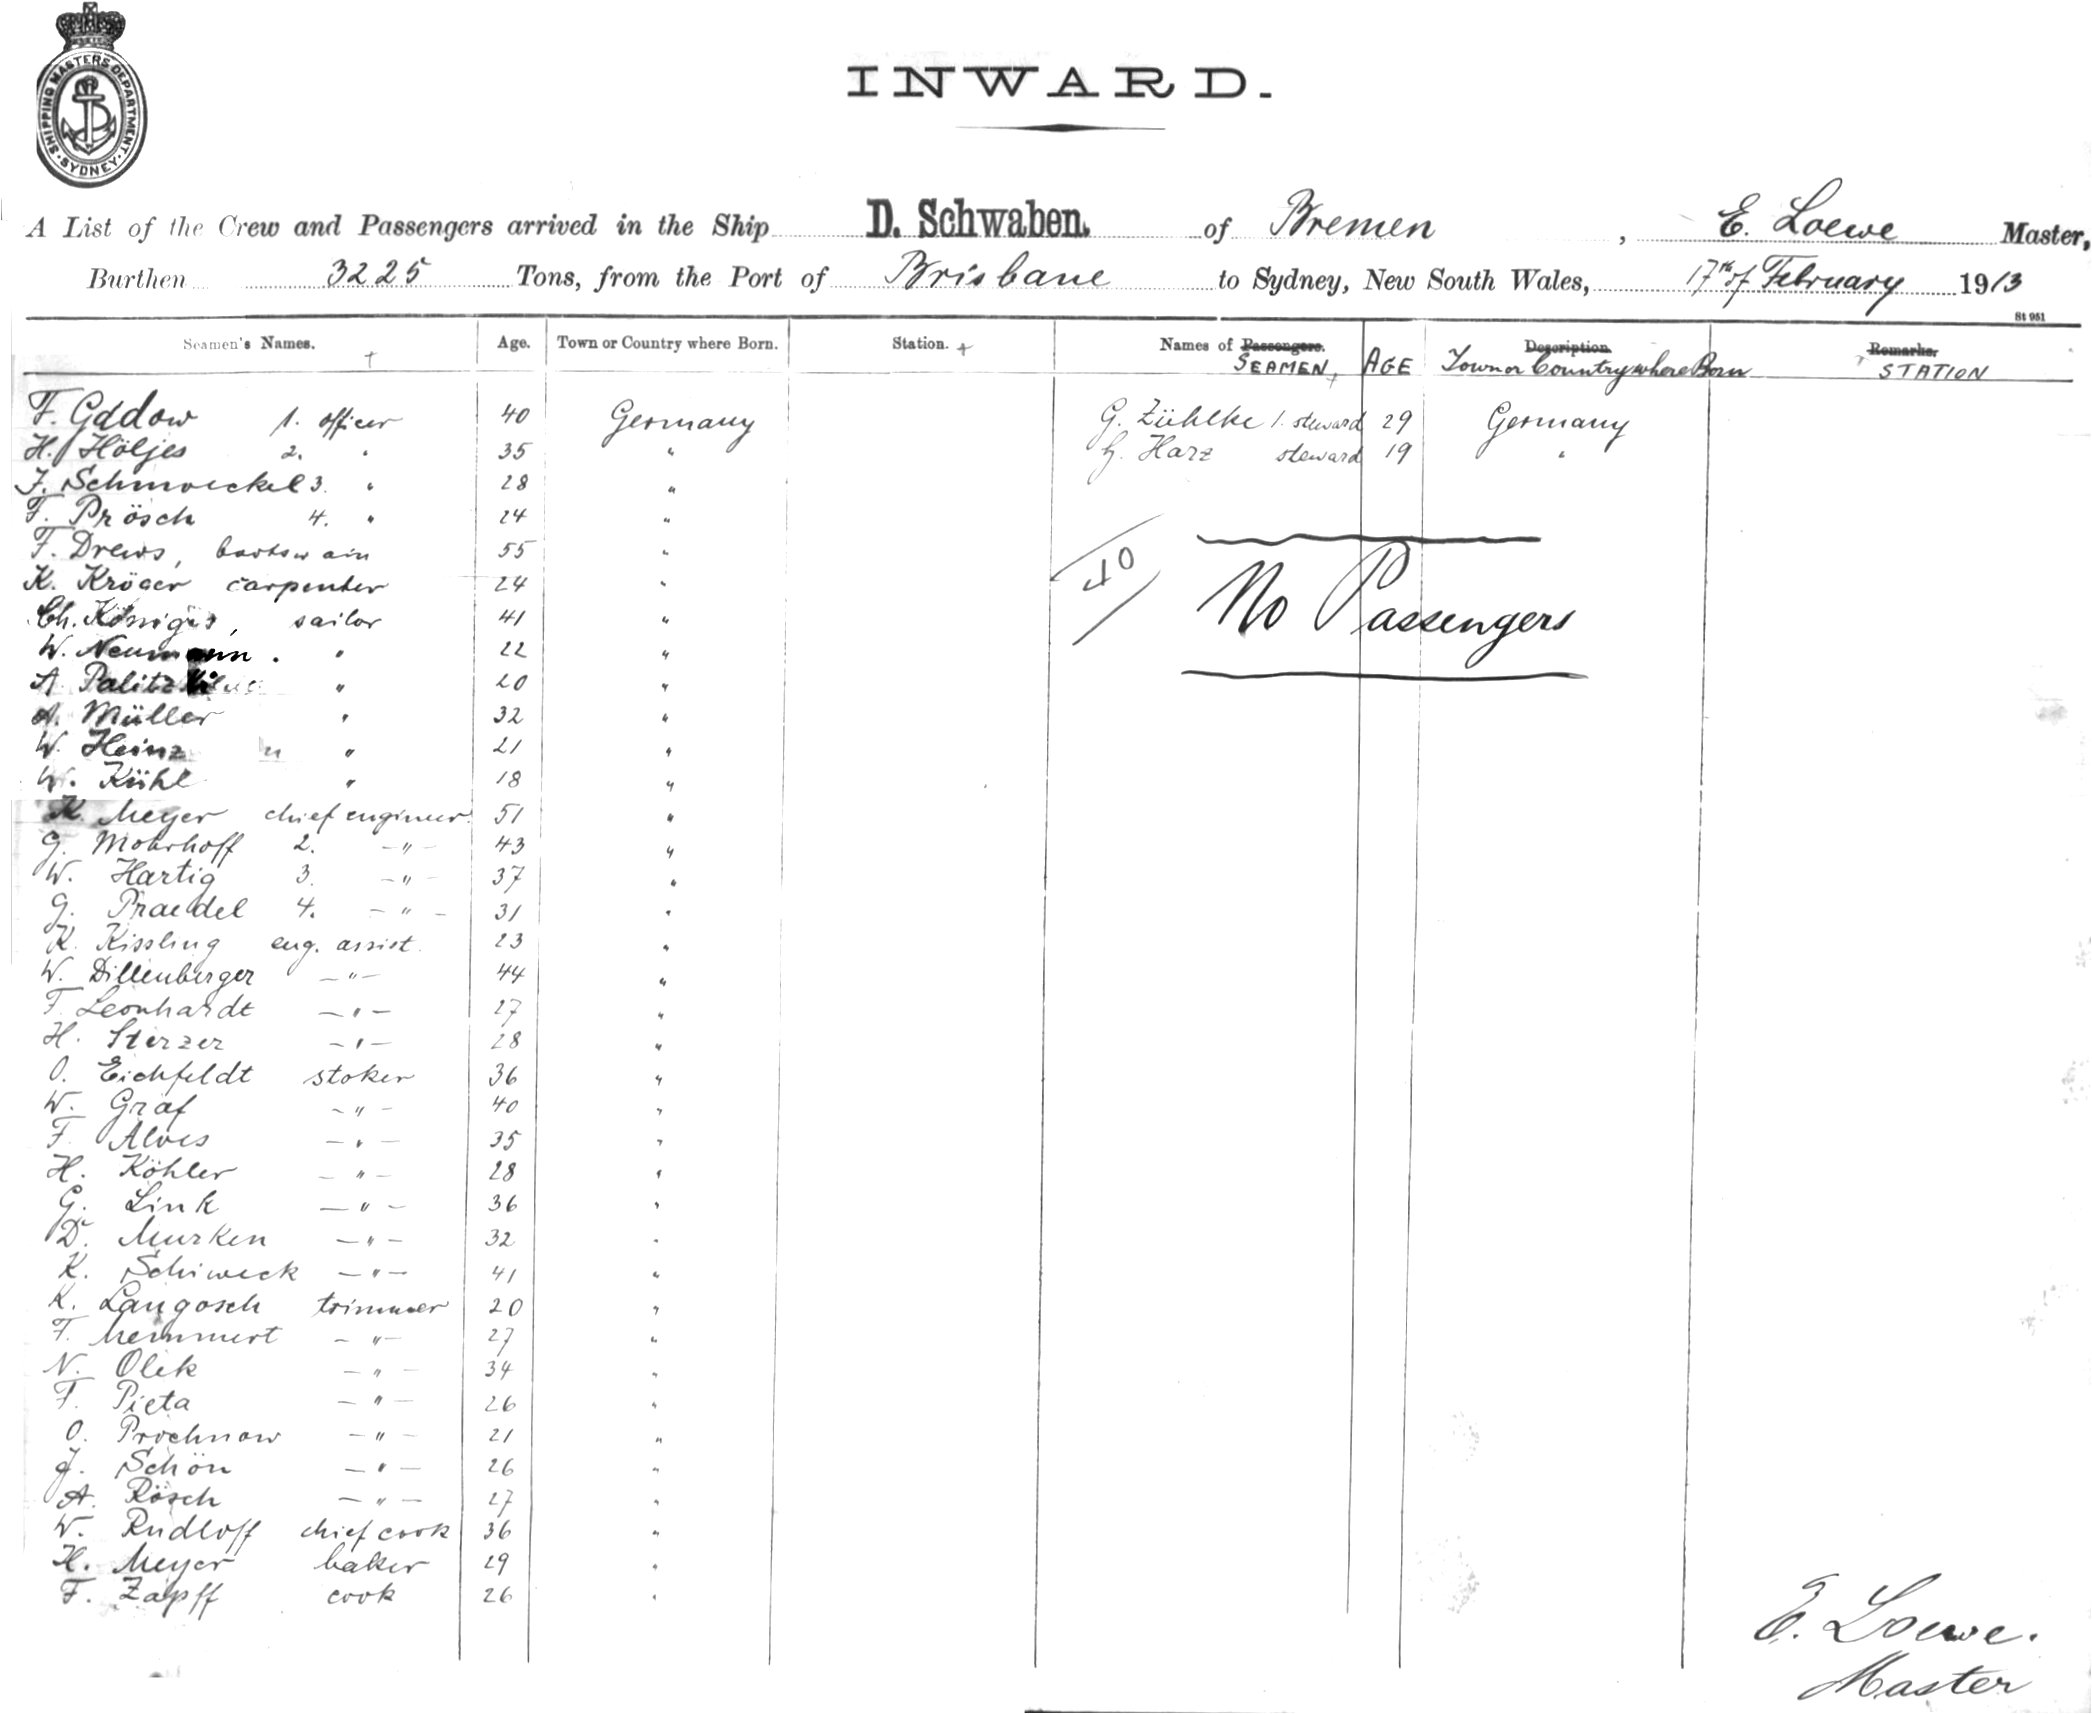 SHIPPING MASTERS DEPARTMENT · SYDNEY ·
INWARD.
A List of the Crew and Passengers arrived in the Ship D. Schwaben. of Bremen, E. Loewe Master,
Burthen 3225 Tons, from the Port of Brisbane to Sydney, New South Wales, 17th of February 1913
St 951
Seamen's Names. Age. Town or Country where Born. Station. + Names of Passengers. SEAMEN AGE Description Town or Country where Born Remarks. STATION
F. Gädow 1. officer 40 Germany G. Zühlke 1. steward 29 Germany
H. Höljes 2. " 35 " H. Harz steward 19 "
J. Schmoeckel 3. " 28 "
F. Prösch 4. " 24 "
F. Drews, bootswain 55 "
K. Kröger carpenter 24 "
Ch. Königs, sailor 41 "
W. Neumann. " 22 "
A. " 20 "
A. Müller " 32 "
W. Heinz " 21 "
W. Kühl " 18 "
K. Meyer chief engineer 51 "
G. Mohrhoff 2. -"- 43 "
W. Hartig 3. -"- 37 "
G. Praedel 4. -"- 31 "
K. Kissling eng. assist. 23 "
W. Dillenberger -"- 44 "
F. Leonhardt -"- 27 "
H. Sterzer -"- 28 "
O. Eichfeldt stoker 36 "
W. Graf -"- 40 "
F. Alves -"- 35 "
H. Köhler -"- 28 "
G. Link -"- 36 "
D. Murken -"- 32 "
K. Schiweck -"- 41 "
K. Langosch trimmer 20 "
F. Memmert -"- 27 "
N. Olek -"- 34 "
F. Pieta -"- 26 "
O. Prochnow -"- 21 "
J. Schön -"- 26 "
A. Rösch -"- 27 "
W. Rudloff chief cook 36 "
H. Meyer baker 29 "
F. Zapff cook 26 "
40
No Passengers
E. Loewe.
Master